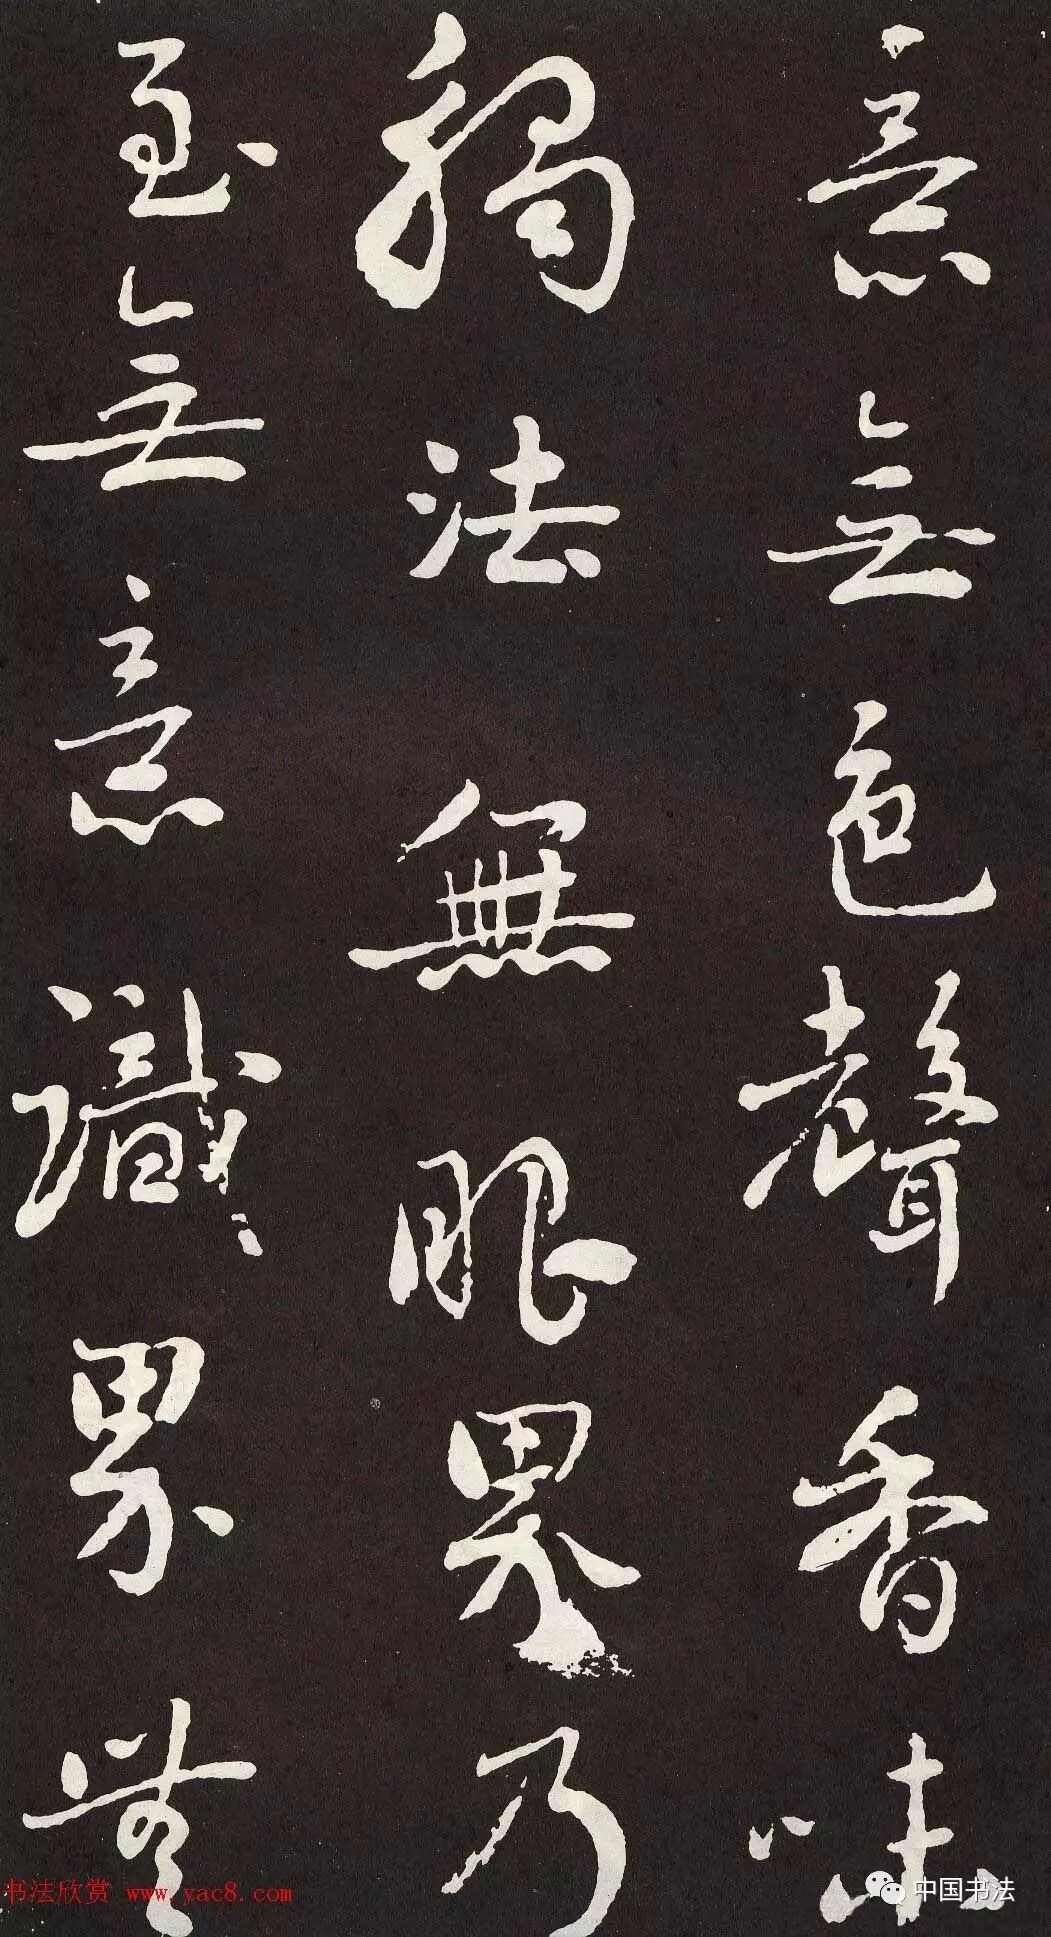 意無色聲香味
觸法無眼界乃
至無意識界無
书法欣赏 www.yac8.com
中国书法